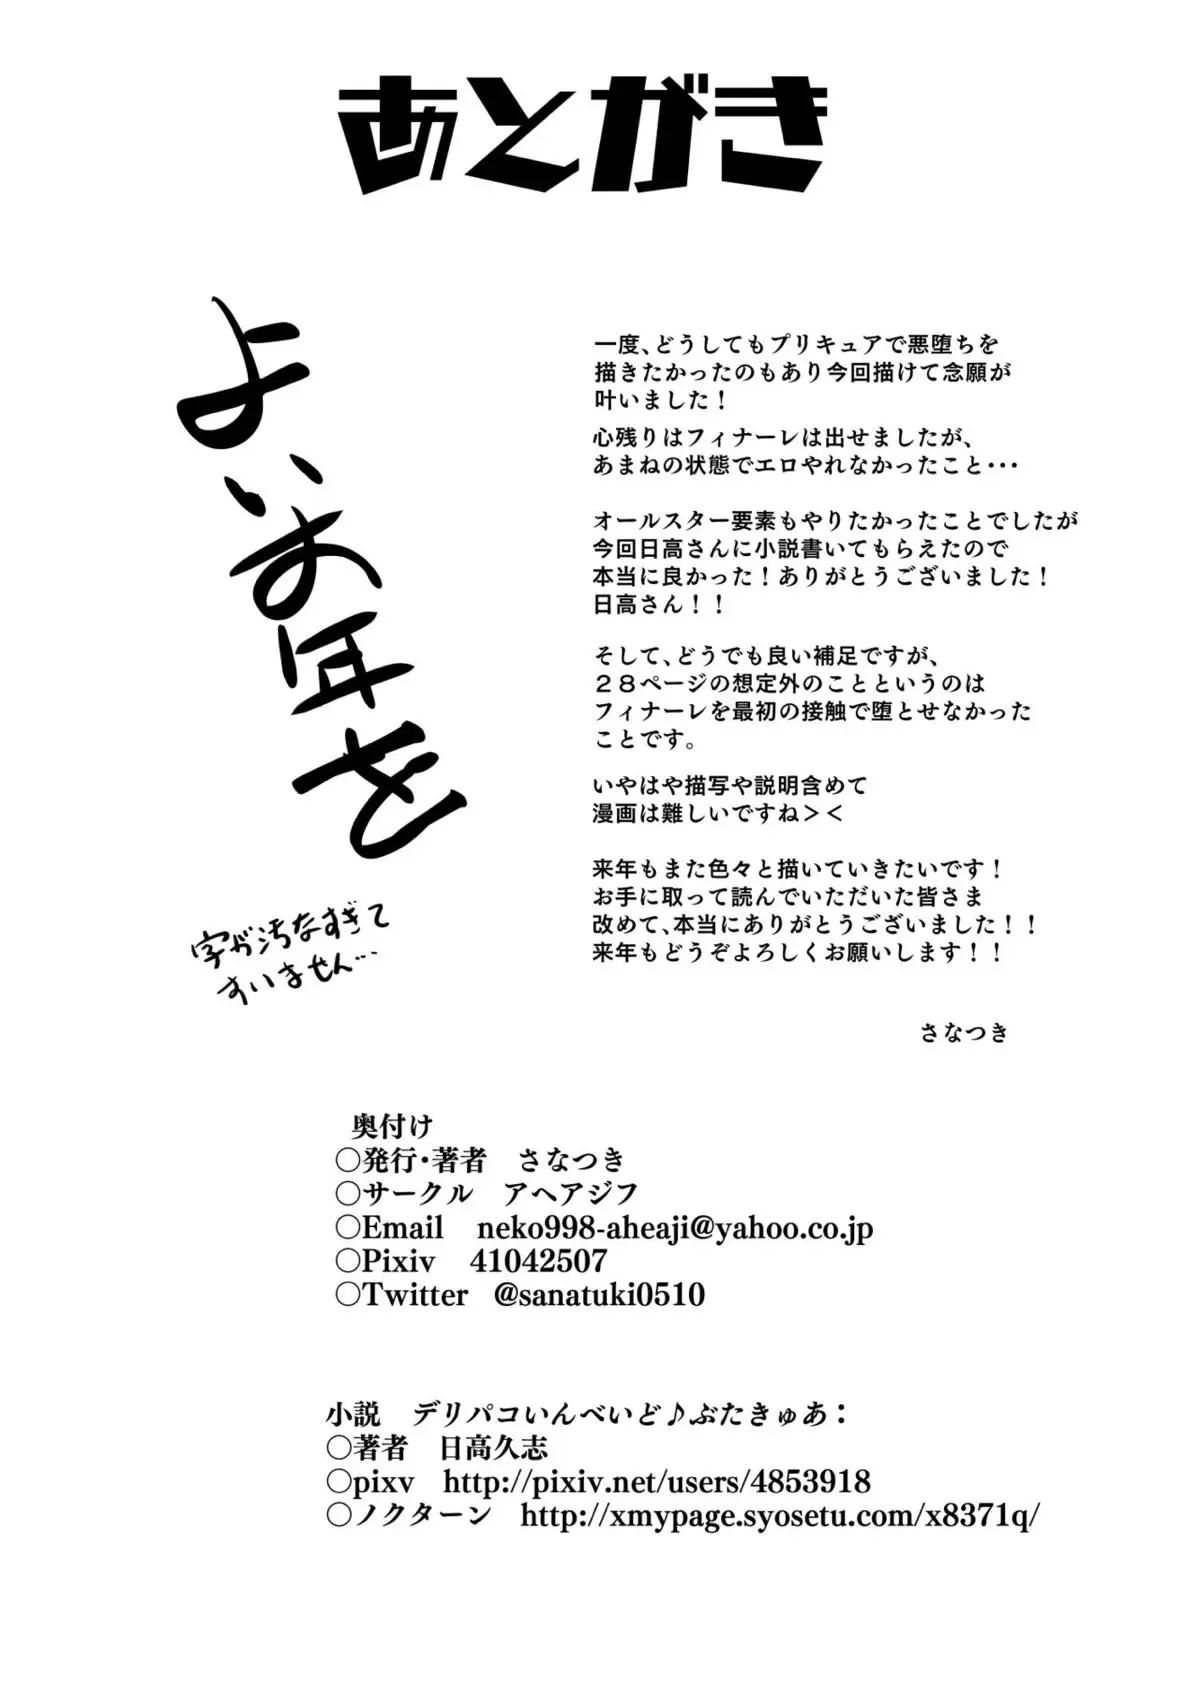 あとがき
よいお年を
字が汚なすぎて
すいません…
一度、どうしてもプリキュアで悪堕ちを
描きたかったのもあり今回描けて念願が
叶いました！
心残りはフィナーレは出せましたが、
あまねの状態でエロやれなかったこと・・・
オールスター要素もやりたかったことでしたが
今回日高さんに小説書いてもらえたので
本当に良かった！ありがとうございました！
日高さん！！
そして、どうでも良い補足ですが、
２８ページの想定外のことというのは
フィナーレを最初の接触で堕とせなかった
ことです。
いやはや描写や説明含めて
漫画は難しいですね＞＜
来年もまた色々と描いていきたいです！
お手に取って読んでいただいた皆さま
改めて、本当にありがとうございました！！
来年もどうぞよろしくお願いします！！
さなつき
奥付け
○発行・著者　さなつき
○サークル　アヘアジフ
○Email　neko998-aheaji@yahoo.co.jp
○Pixiv　41042507
○Twitter　@sanatuki0510
小説　デリパコいんべいど♪ぶたきゅあ：
○著者　日高久志
○pixv　http://pixiv.net/users/4853918
○ノクターン　http://xmypage.syosetu.com/x8371q/